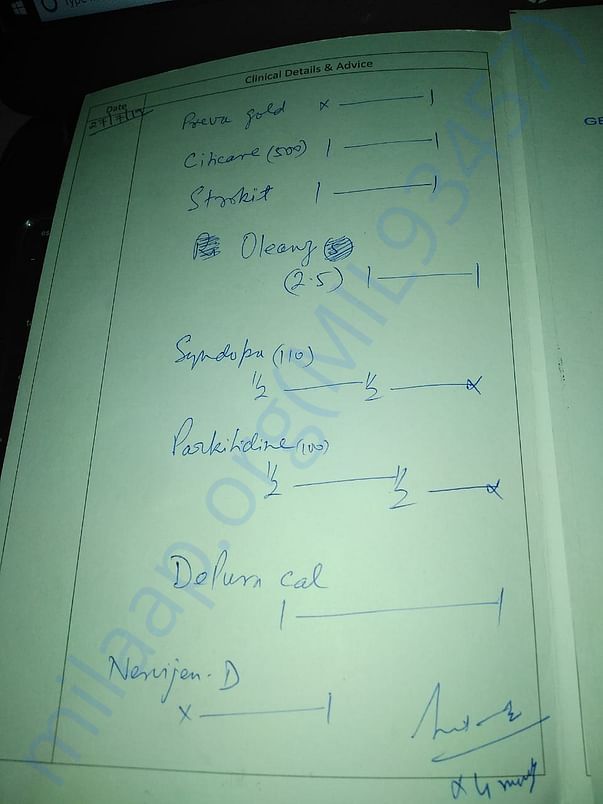 Clinical Details & Advice
Date
Preva gold × — |
Citicare (500) | — |
Strokit | — |
Oleanz
(2.5) | — |
Syndopa (110)
1/2 — 1/2 — ×
Parkitidine (100)
1/2 — 1/2 — ×
Depura cal
| — |
Nervijen-D
× — |
GE
milaap.org(MIL93457)